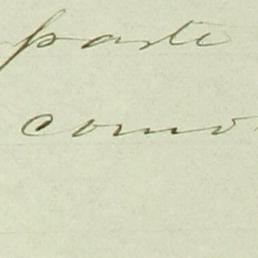 parte
como